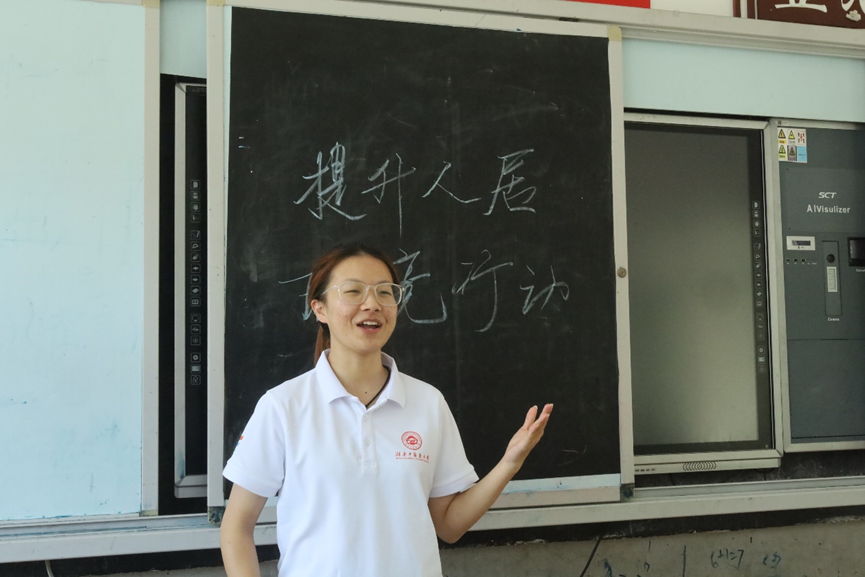 提升人居
环境行动
SCT
AIVisulizer